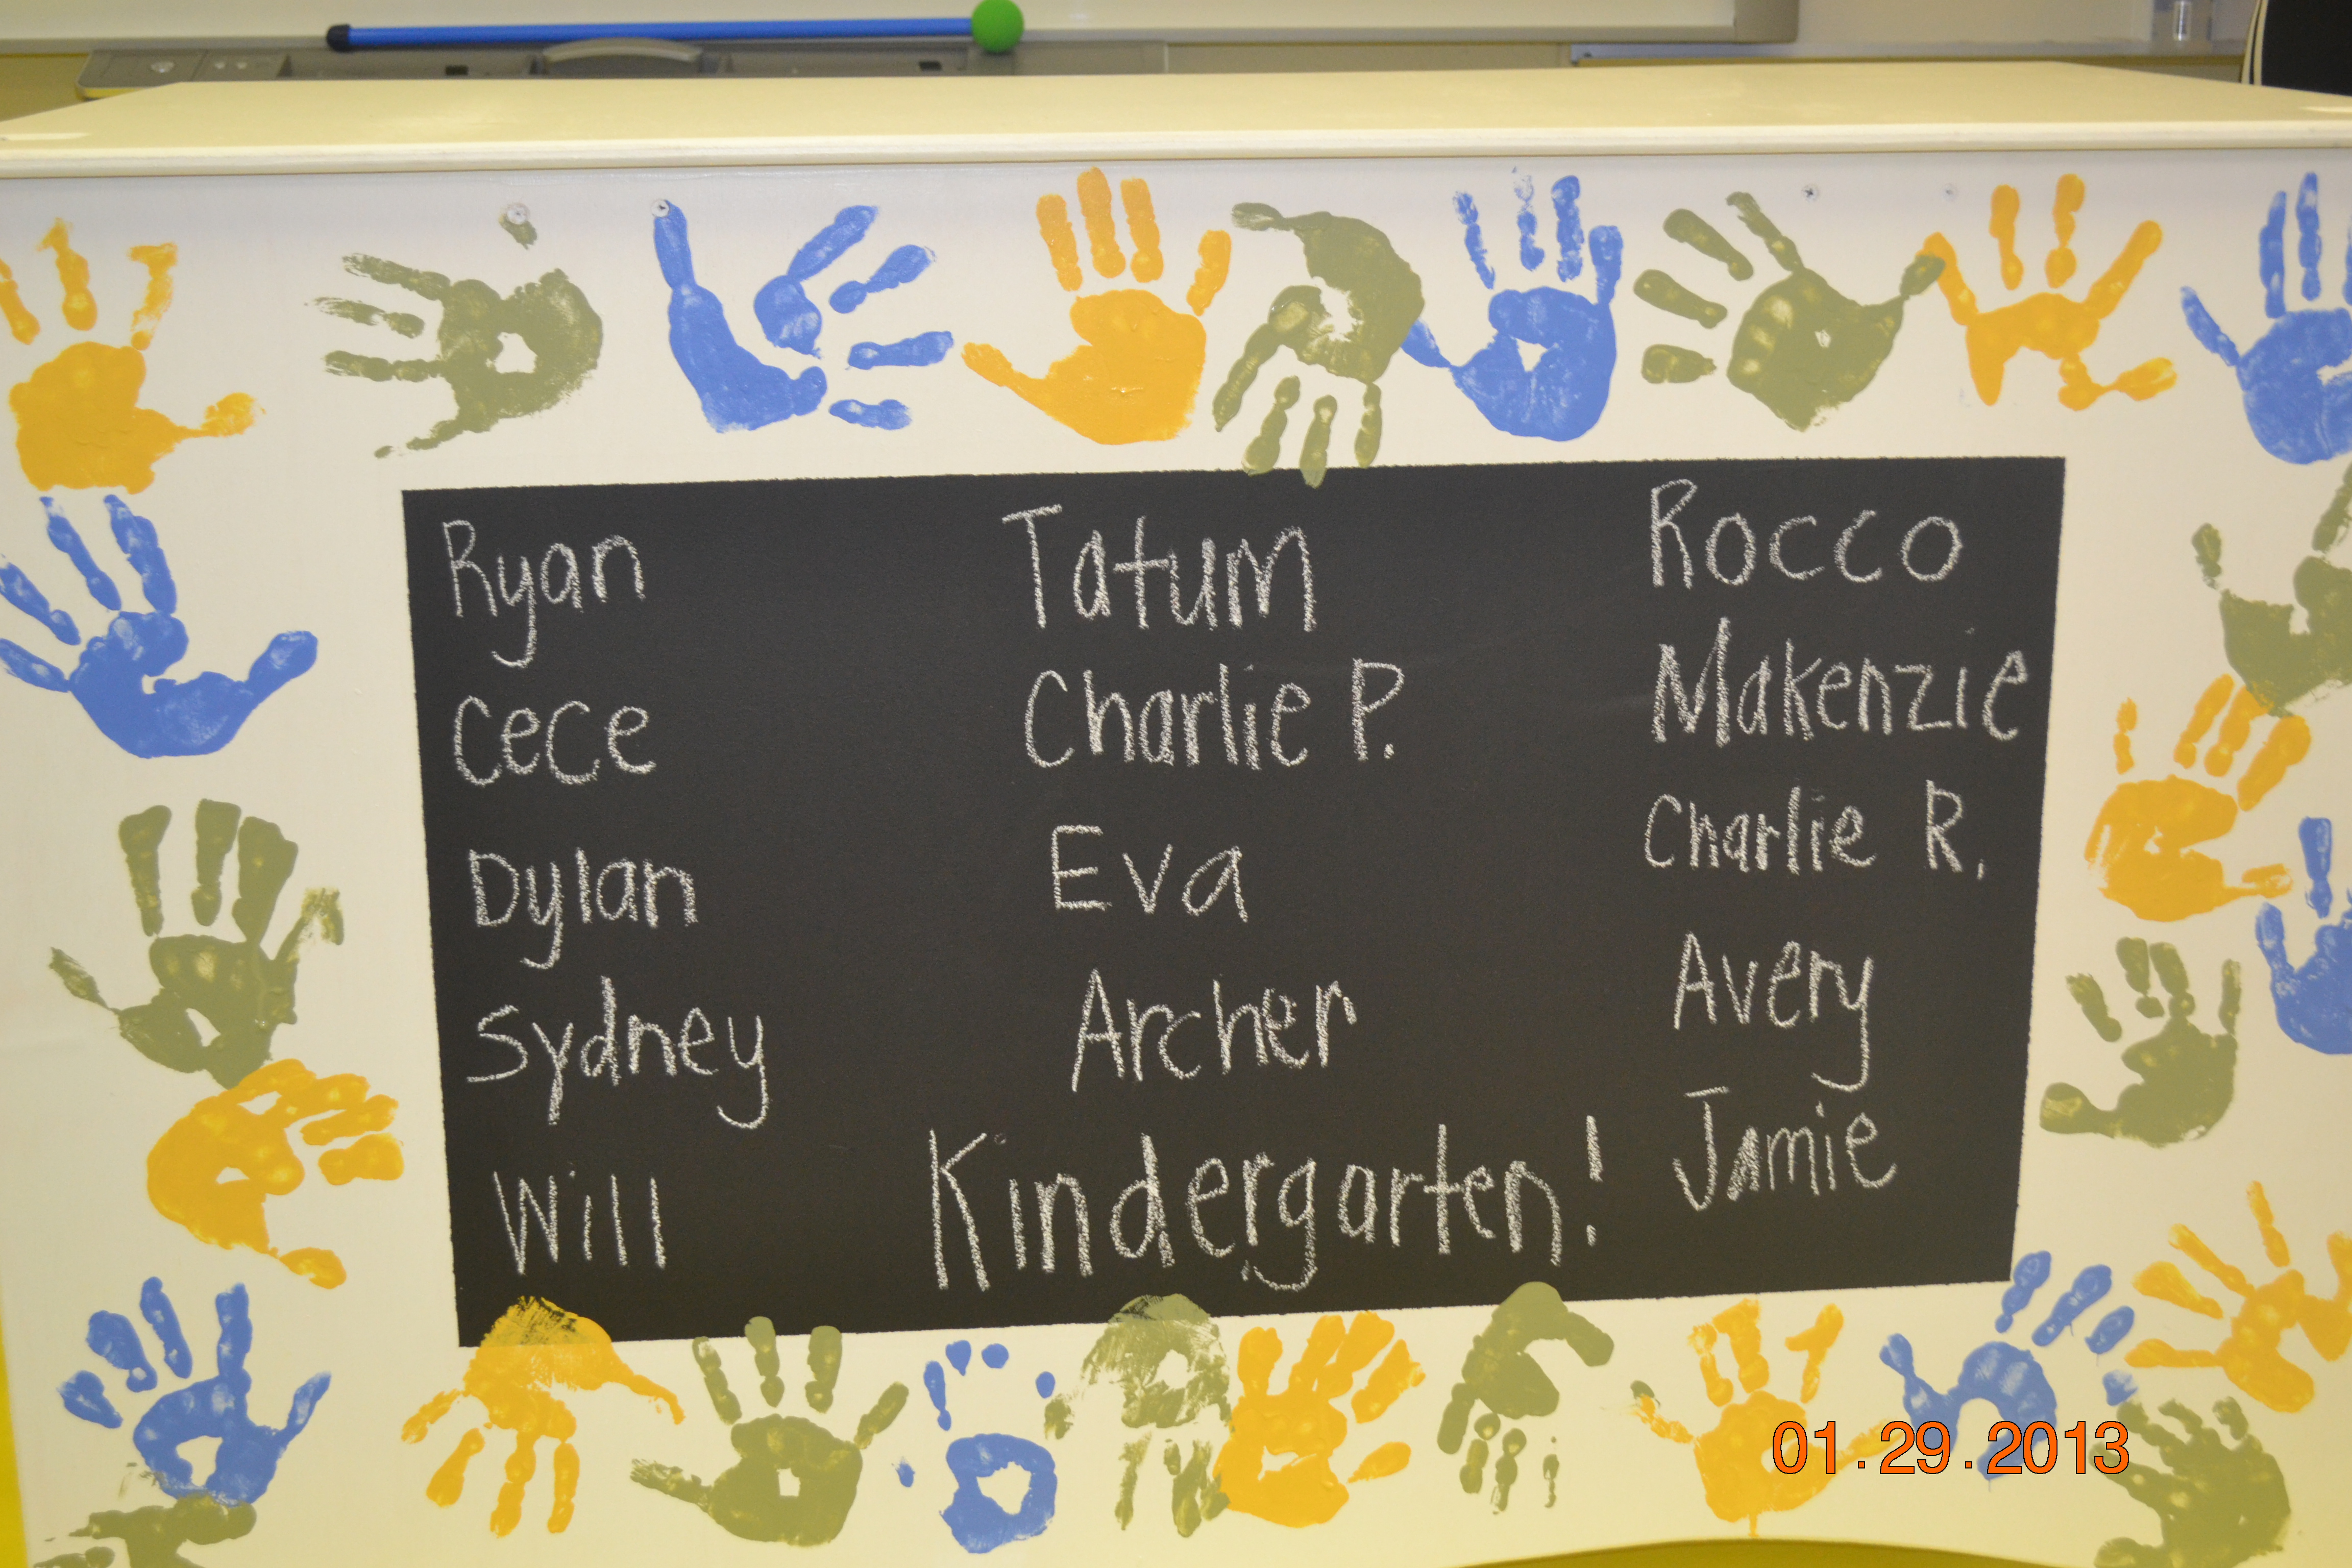 Ryan
Cece
Dylan
Sydney
Will
Tatum
Charlie P.
Eva
Archer
Kindergarten!
Rocco
Makenzie
Charlie R.
Avery
Jamie
01.29.2013